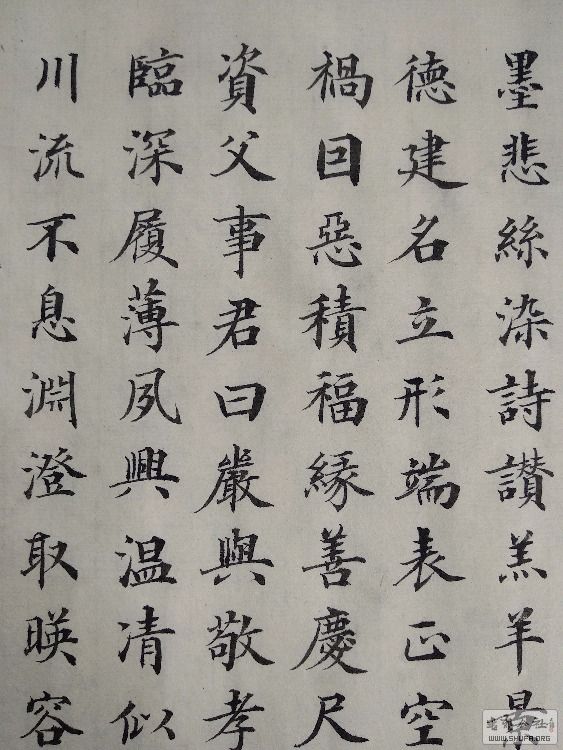 墨悲絲染詩讃羔羊景
德建名立形端表正空
禍因惡積福緣善慶尺
資父事君曰嚴與敬孝
臨深履薄夙興温清似
川流不息淵澄取暎容
WWW.SHUFA.ORG